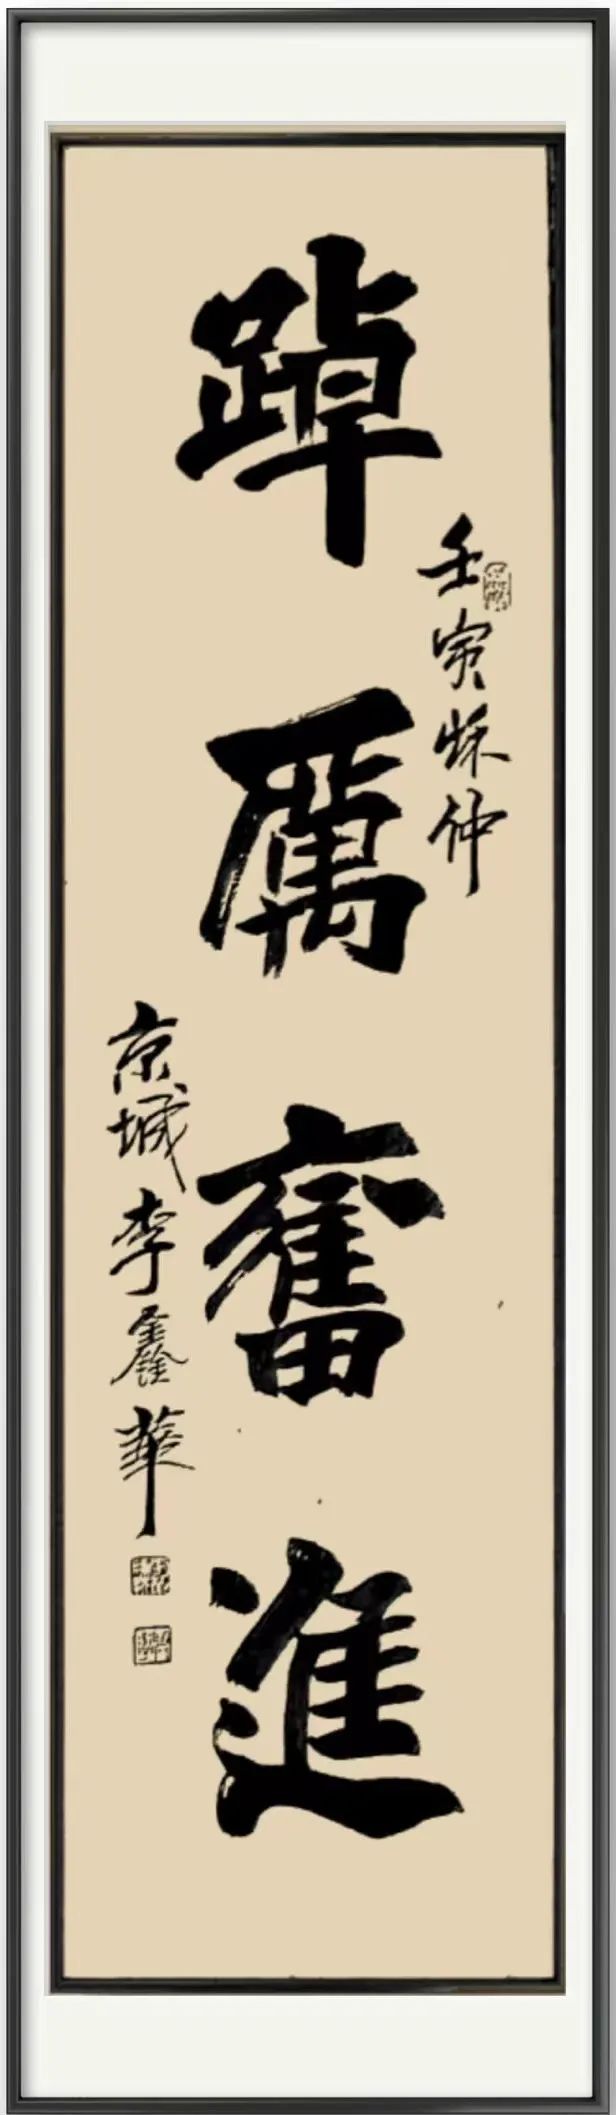 壬寅秌仲
踔厲奮進
京城李鑫華